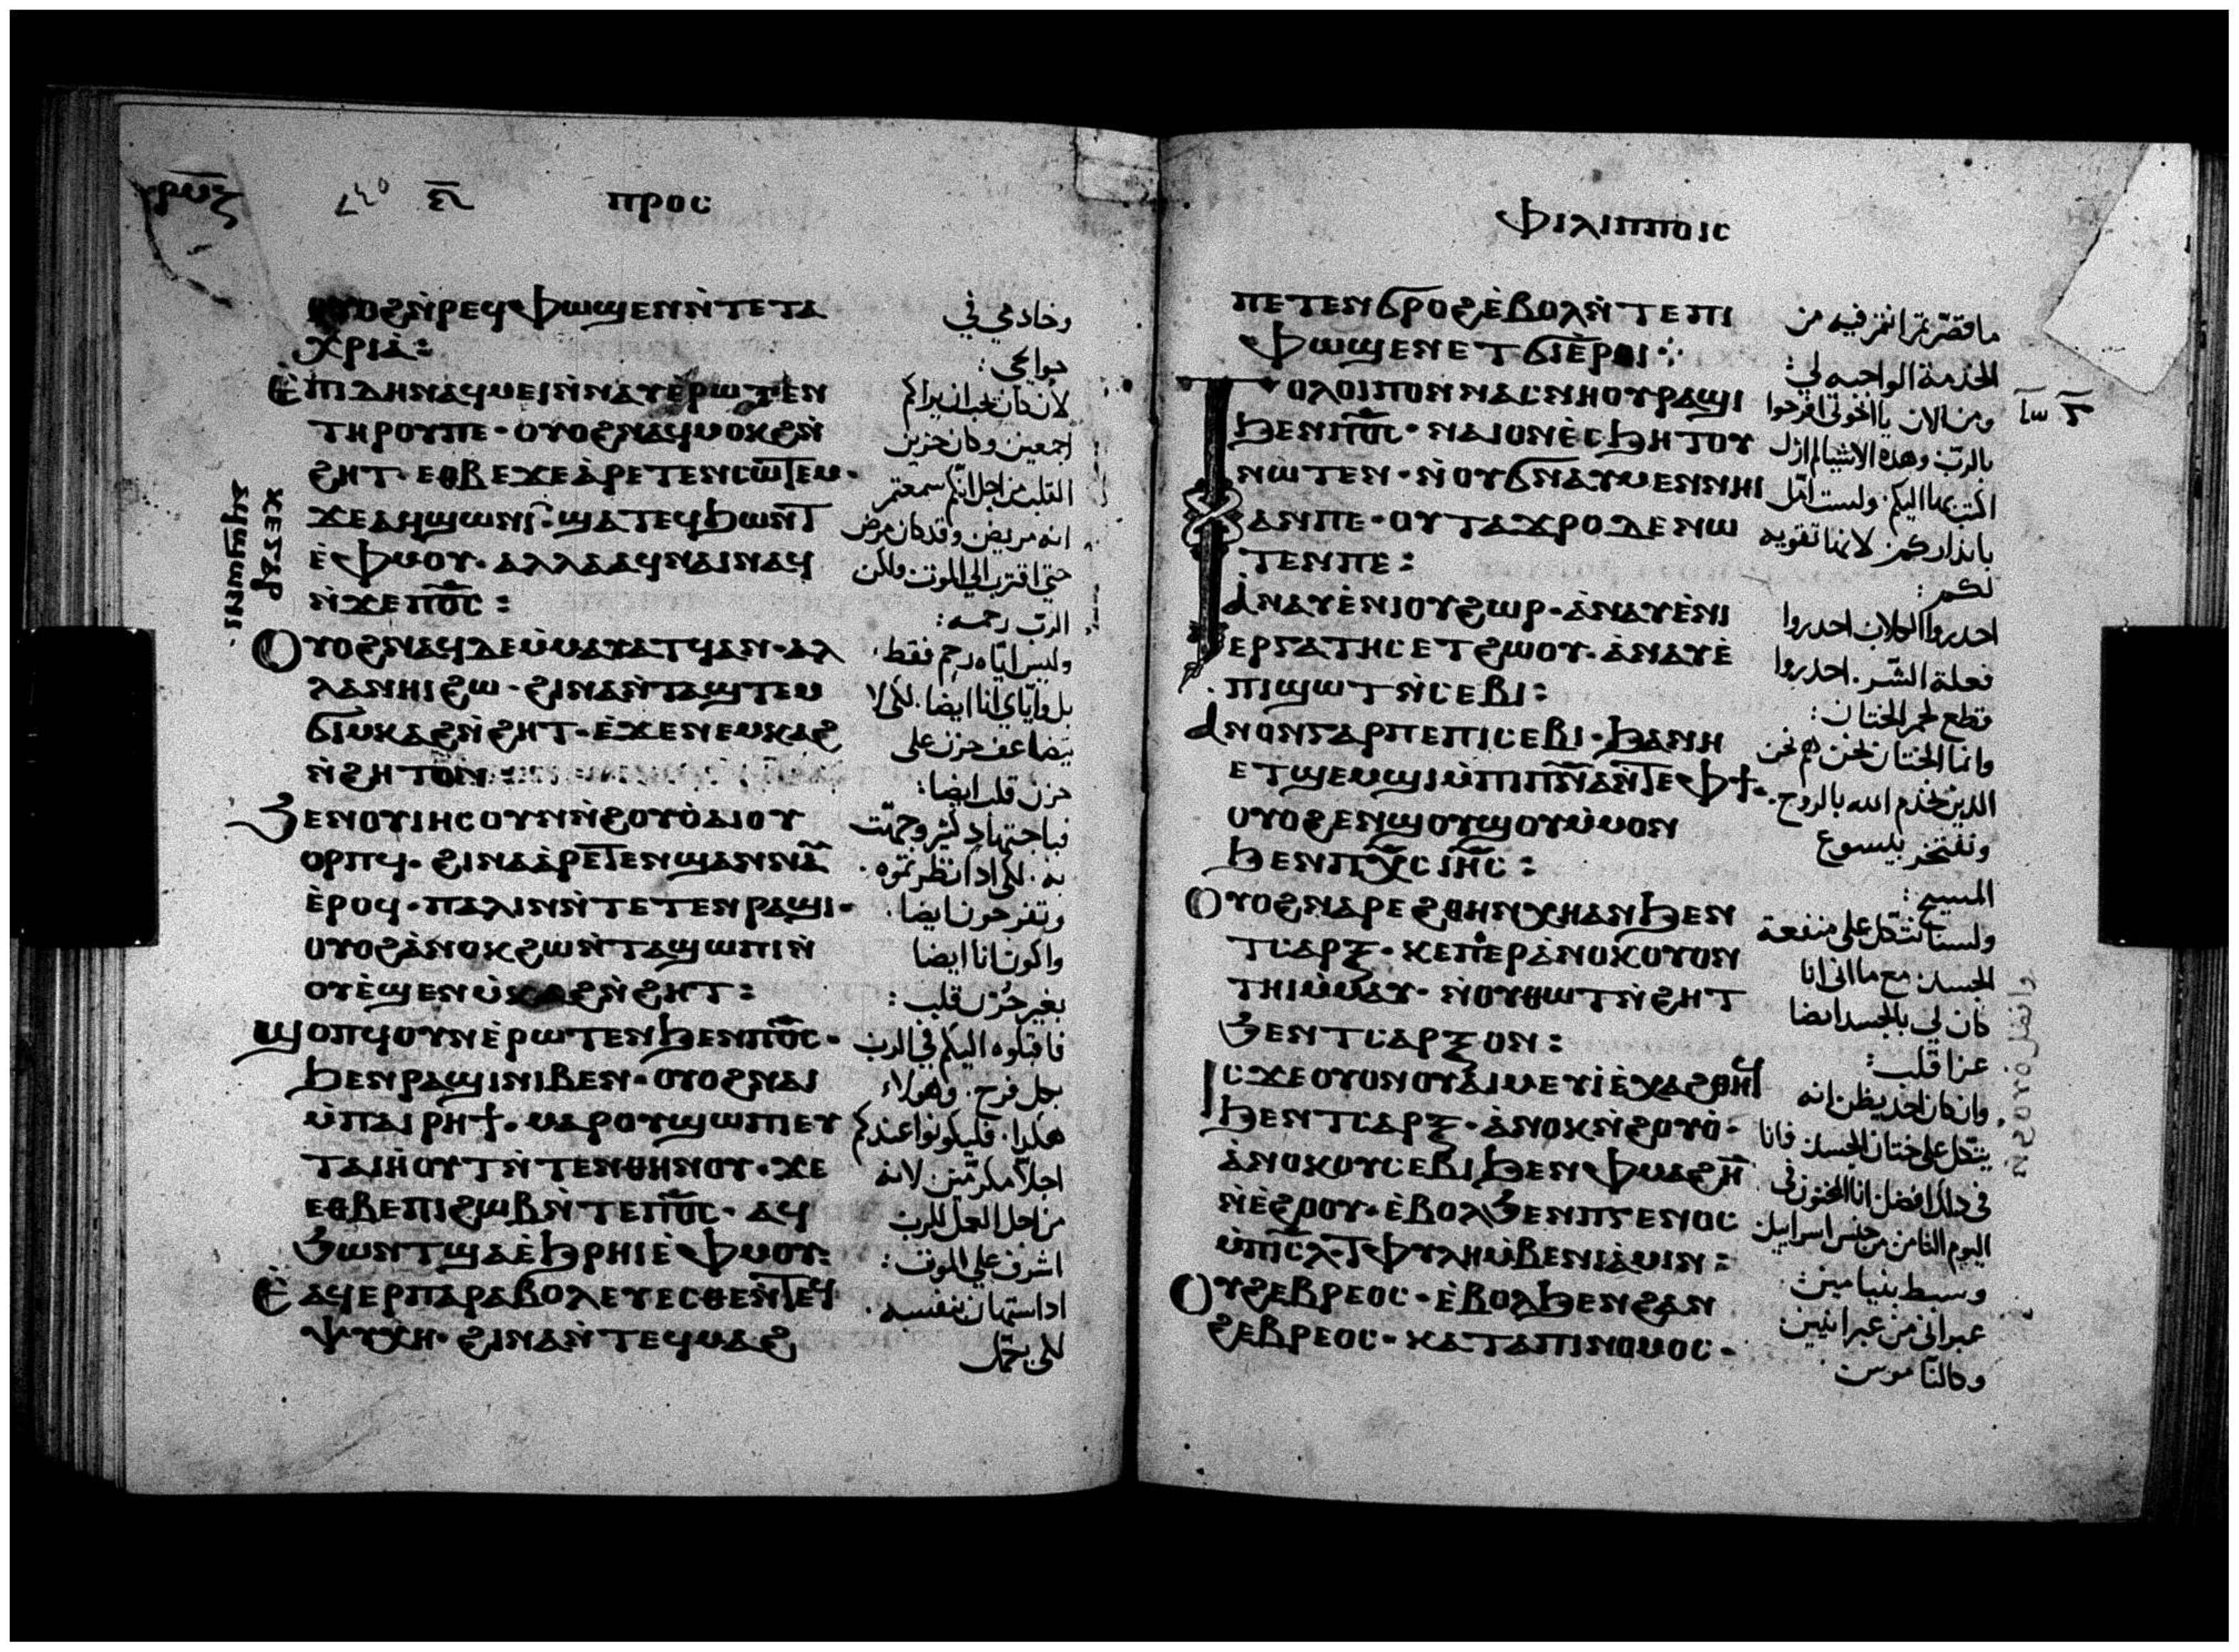 ⲡⲣⲟⲥ
ⲟⲩⲟϩ ⲛ̀ⲣⲉϥⲫⲱϣⲉⲛ ⲛ̀ⲧⲉ ⲧⲁ
ⲭⲣⲓⲁ̀:
Ⲉ̀ⲡⲓⲇⲏ ⲛⲁϥⲙⲉⲓ ⲛ̀ⲛⲁⲩ ⲉ̀ⲣⲱⲧⲉⲛ
ⲧⲏⲣⲟⲩ ⲡⲉ· ⲟⲩⲟϩ ⲛⲁϥⲙⲟⲕϩ ⲛ̀
ϩⲏⲧ· ⲉⲑⲃⲉ ϫⲉ ⲁ̀ⲣⲉⲧⲉⲛⲥⲱⲧⲉⲙ·
ϫⲉ ⲁϥϣⲱⲛⲓ· ϣⲁⲧⲉϥϧⲱⲛⲧ
ⲉ̀ ⲫⲙⲟⲩ· ⲁⲗⲗⲁ ⲁϥⲛⲁⲓ ⲛⲁϥ
ⲛ̀ϫⲉ ⲡⲟ̅ⲥ̅:
Ⲟⲩⲟϩ ⲛⲁϥ ⲇⲉ ⲙ̀ⲙⲁⲩⲁⲧϥ ⲁⲛ· ⲁⲗ
ⲗⲁ ⲛⲏⲓ ϩⲱ· ϩⲓⲛⲁ ⲛ̀ⲧⲁϣⲧⲉⲙ
ϭⲓ ⲙⲕⲁϩ ⲛ̀ϩⲏⲧ· ⲉ̀ϫⲉⲛ ⲉⲙⲕⲁϩ
ⲛ̀ϩⲏⲧ ⲟⲛ:
Ϧⲉⲛ ⲟⲩⲓⲏⲥ ⲟⲩⲛ ⲛ̀ϩⲟⲩⲟ̀ ⲁⲓⲟⲩ
ⲟⲣⲡϥ· ϩⲓⲛⲁ ⲁ̀ⲣⲉⲧⲉⲛϣⲁⲛⲛⲁⲩ
ⲉ̀ⲣⲟϥ· ⲡⲁⲗⲓⲛ ⲛ̀ⲧⲉⲧⲉⲛⲣⲁϣⲓ·
ⲟⲩⲟϩ ⲁ̀ⲛⲟⲕ ϩⲱ ⲛ̀ⲧⲁϣⲱⲡⲓ ⲛ̀
ⲟⲩⲉ̀ϣⲉⲛ ⲙ̀ⲕⲁϩ ⲛ̀ϩⲏⲧ:
Ϣⲟⲡϥ ⲟⲩⲛ ⲉ̀ⲣⲱⲧⲉⲛ ϧⲉⲛ ⲡⲟ̅ⲥ̅·
ϧⲉⲛ ⲣⲁϣⲓ ⲛⲓⲃⲉⲛ· ⲟⲩⲟϩ ⲛⲁⲓ
ⲙ̀ⲡⲁⲓⲣⲏϯ· ⲙⲁⲣⲟⲩϣⲱⲡⲓ ⲉⲩ
ⲧⲁⲓⲏⲟⲩⲧ ⲛ̀ⲧⲉⲛ ⲑⲏⲛⲟⲩ· ϫⲉ
ⲉⲑⲃⲉ ⲡⲓϩⲱⲃ ⲛ̀ⲧⲉ ⲡⲟ̅ⲥ̅· ⲁϥ
ϧⲱⲛⲧ ϣⲁ ⲉ̀ϧⲣⲏⲓ ⲉ̀ ⲫⲙⲟⲩ:
Ⲉ̀ ⲁϥⲉⲣⲡⲁⲣⲁⲃⲟⲗⲉⲩⲉⲥⲑⲉ ⲛ̀ⲧⲉϥ
ⲯⲩⲭⲏ· ϩⲓⲛⲁ ⲛ̀ⲧⲉϥⲙⲁϩ
وخادمي في
حوايجي:
لان كان يحب ان يراكم
اجمعين وكان حزين
القلب من اجل انكم سمعتم
انه مريض وقد كان مرض
حتى اقترب الي الموت ولكن
الرب رحمه:
وليس اياه رحم فقط.
بل واياي انا ايضا. لكي لا
يتضاعف حزن على
حزن قلب ايضا:
فباجتهاد كثير وجهت
به. لكي ادا نظرتموه.
وتفرحون ايضا.
واكون انا ايضا
بغير حزن قلب:
فاقبلوه اليكم في الرب
بكل فرح. وهولاء
هكدا. فليكونوا عندكم
اجلا مكرمين لانه
من اجل العمل للرب
اشرف على الموت:
ادا استهان بنفسه.
لكي يكمل
ⲫⲓⲗⲓⲡⲡⲟⲓⲥ
ⲡⲉⲧⲉⲛϭⲣⲟϩ ⲉ̀ⲃⲟⲗ ⲛ̀ⲧⲉ ⲡⲓ
ⲫⲱϣⲉⲛ ⲉⲧϭⲓ ⲉ̀ⲣⲟⲓ:
Ⲧⲟ ⲗⲟⲓⲡⲟⲛ ⲛⲁⲥⲛⲏⲟⲩ ⲣⲁϣⲓ
ϧⲉⲛ ⲡⲟ̅ⲥ̅· ⲛⲁⲓ ⲟⲛ ⲉ̀ⲥϧⲏⲧⲟⲩ
ⲛⲱⲧⲉⲛ· ⲛ̀ⲟⲩϭⲛⲁⲩ ⲙⲉⲛ ⲛⲏⲓ
ⲁⲛ ⲡⲉ· ⲟⲩⲧⲁϫⲣⲟ ⲇⲉ ⲛⲱ
ⲧⲉⲛ ⲡⲉ:
Ⲁⲛⲁⲩ ⲉ̀ⲛⲓⲟⲩϩⲱⲣ· ⲁ̀ⲛⲁⲩ ⲉ̀ⲛⲓ
ⲉⲣⲅⲁⲧⲏⲥ ⲉⲧϩⲱⲟⲩ· ⲁ̀ⲛⲁⲩ ⲉ̀
ⲡⲓϣⲱⲧ ⲛ̀ⲥⲉⲃⲓ:
Ⲁⲛⲟⲛ ⲅⲁⲣ ⲡⲉ ⲡⲓⲥⲉⲃⲓ· ϧⲁ ⲛⲏ
ⲉⲧϣⲉⲙϣⲓ ⲙ̀ⲡⲓⲡ̅ⲛ̅ⲁ̅ ⲛ̀ⲧⲉ ⲫϯ·
ⲟⲩⲟϩ ⲉⲛϣⲟⲩϣⲟⲩ ⲙ̀ⲙⲟⲛ
ϧⲉⲛ ⲡⲭ̅ⲥ̅ ⲓⲏ̅ⲥ̅:
Ⲟⲩⲟϩ ⲛⲁⲣⲉ ϩⲑⲏⲛ ⲭⲏ ⲁⲛ ϧⲉⲛ
ⲧⲥⲁⲣⲝ· ⲕⲉⲡⲉⲣ ⲁ̀ⲛⲟⲕ ⲟⲩⲟⲛ
ⲧⲏⲓ ⲙ̀ⲙⲁⲩ· ⲛ̀ⲟⲩⲑⲱⲧ ⲛ̀ϩⲏⲧ
ϧⲉⲛ ⲧⲥⲁⲣⲝ ⲟⲛ:
Ⲓⲥϫⲉ ⲟⲩⲟⲛ ⲟⲩⲁⲓ ⲙⲉⲩⲓ̀ ⲉ̀ⲭⲁ ϩⲑⲏϥ
ϧⲉⲛ ⲧⲥⲁⲣⲝ· ⲁ̀ⲛⲟⲕ ⲛ̀ϩⲟⲩⲟ̀·
ⲁ̀ⲛⲟⲕ ⲟⲩⲥⲉⲃⲓ ϧⲉⲛ ⲫⲙⲁϩ ⲏ̅
ⲛ̀ⲉ̀ϩⲟⲟⲩ· ⲉ̀ⲃⲟⲗ ϧⲉⲛ ⲡⲅⲉⲛⲟⲥ
ⲙ̀ⲡⲓⲥ̅ⲗ̅· ⲧⲫⲩⲗⲏ ⲙ̀ⲃⲉⲛⲓⲁⲙⲓⲛ:
Ⲟⲩϩⲉⲃⲣⲉⲟⲥ· ⲉ̀ⲃⲟⲗ ϧⲉⲛ ϩⲁⲛ
ϩⲉⲃⲣⲉⲟⲥ· ⲕⲁⲧⲁ ⲡⲓⲛⲟⲙⲟⲥ·
ما قصرتم انتم فيه من
الخدمة الواجبه لي:
ومن الان يا اخوتي افرحوا
بالرب وهده الاشيا لم ازل
اكتب بها اليكم. ولست امل
بانداركم لانها تقويه
لكم:
احدروا الكلاب احدروا
فعلة الشر. احدروا
قطع لحم الختان:
وانما الختان نحن هم نحن
الدين نخدم الله بالروح.
ونفتخر بيسوع
المسيح:
ولسنا نتكل على منفعة
الجسد. مع ما اني انا
كان لي بالجسد ايضا
عزا قلب:
وان كان احد يظن انه
يتكل على ختان الجسد فانا
في دلك افضل انا المختون في
اليوم الثامن من جنس اسراييل
وسبط بنيامين.
عبراني من عبرانيين
وكالناموس